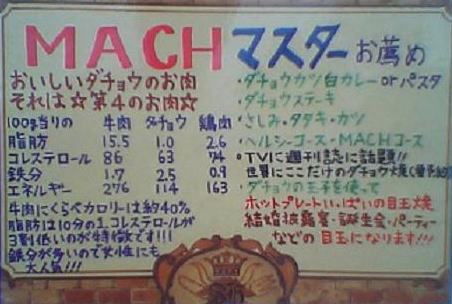 MACHマスターお薦め
おいしいダチョウのお肉
それは☆第4のお肉☆
100g当りの 牛肉 ダチョウ 鶏肉
脂肪 15.5 1.0 2.6
コレステロール 86 63 74
鉄分 1.7 2.5 0.9
エネルギー 276 114 163
牛肉にくらべカロリーは約40%
脂肪は10分の1.コレステロールが
3割低いのが特徴です!!!
鉄分が多いので女性にも
大人気!!!
・ダチョウカツ白カレーorパスタ
・ダチョウステーキ
・さしみ・タタキ・カツ
・ヘルシーコース・MACHコース
・TVに週刊誌に話題!!
世界にここだけのダチョウ焼
・ダチョウの玉子を使って
ホットプレートいっぱいの目玉焼
結婚披露宴・誕生会・パーティー
などの目玉になります!!!